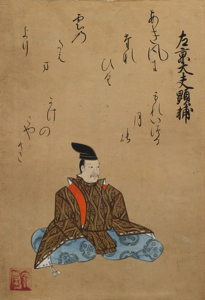 左京大夫顕輔
あき風に
たなひく
雲の
たえ
間
より
もれいつる
月の
かけの
さやけさ